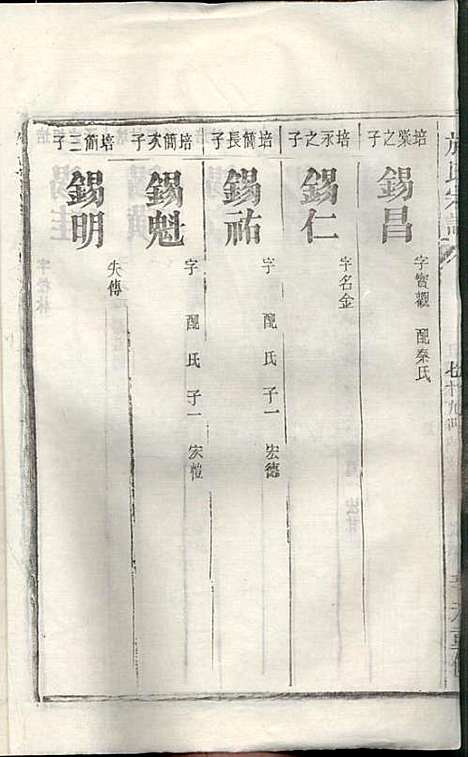 培榮之子
錫昌
字寶觀 配秦氏
培永之子
錫仁
字名金
培簡長子
錫祐
字 配 氏 子一 宏德
培簡次子
錫魁
字 配 氏 子一 宏愷
培簡三子
錫明
失傳